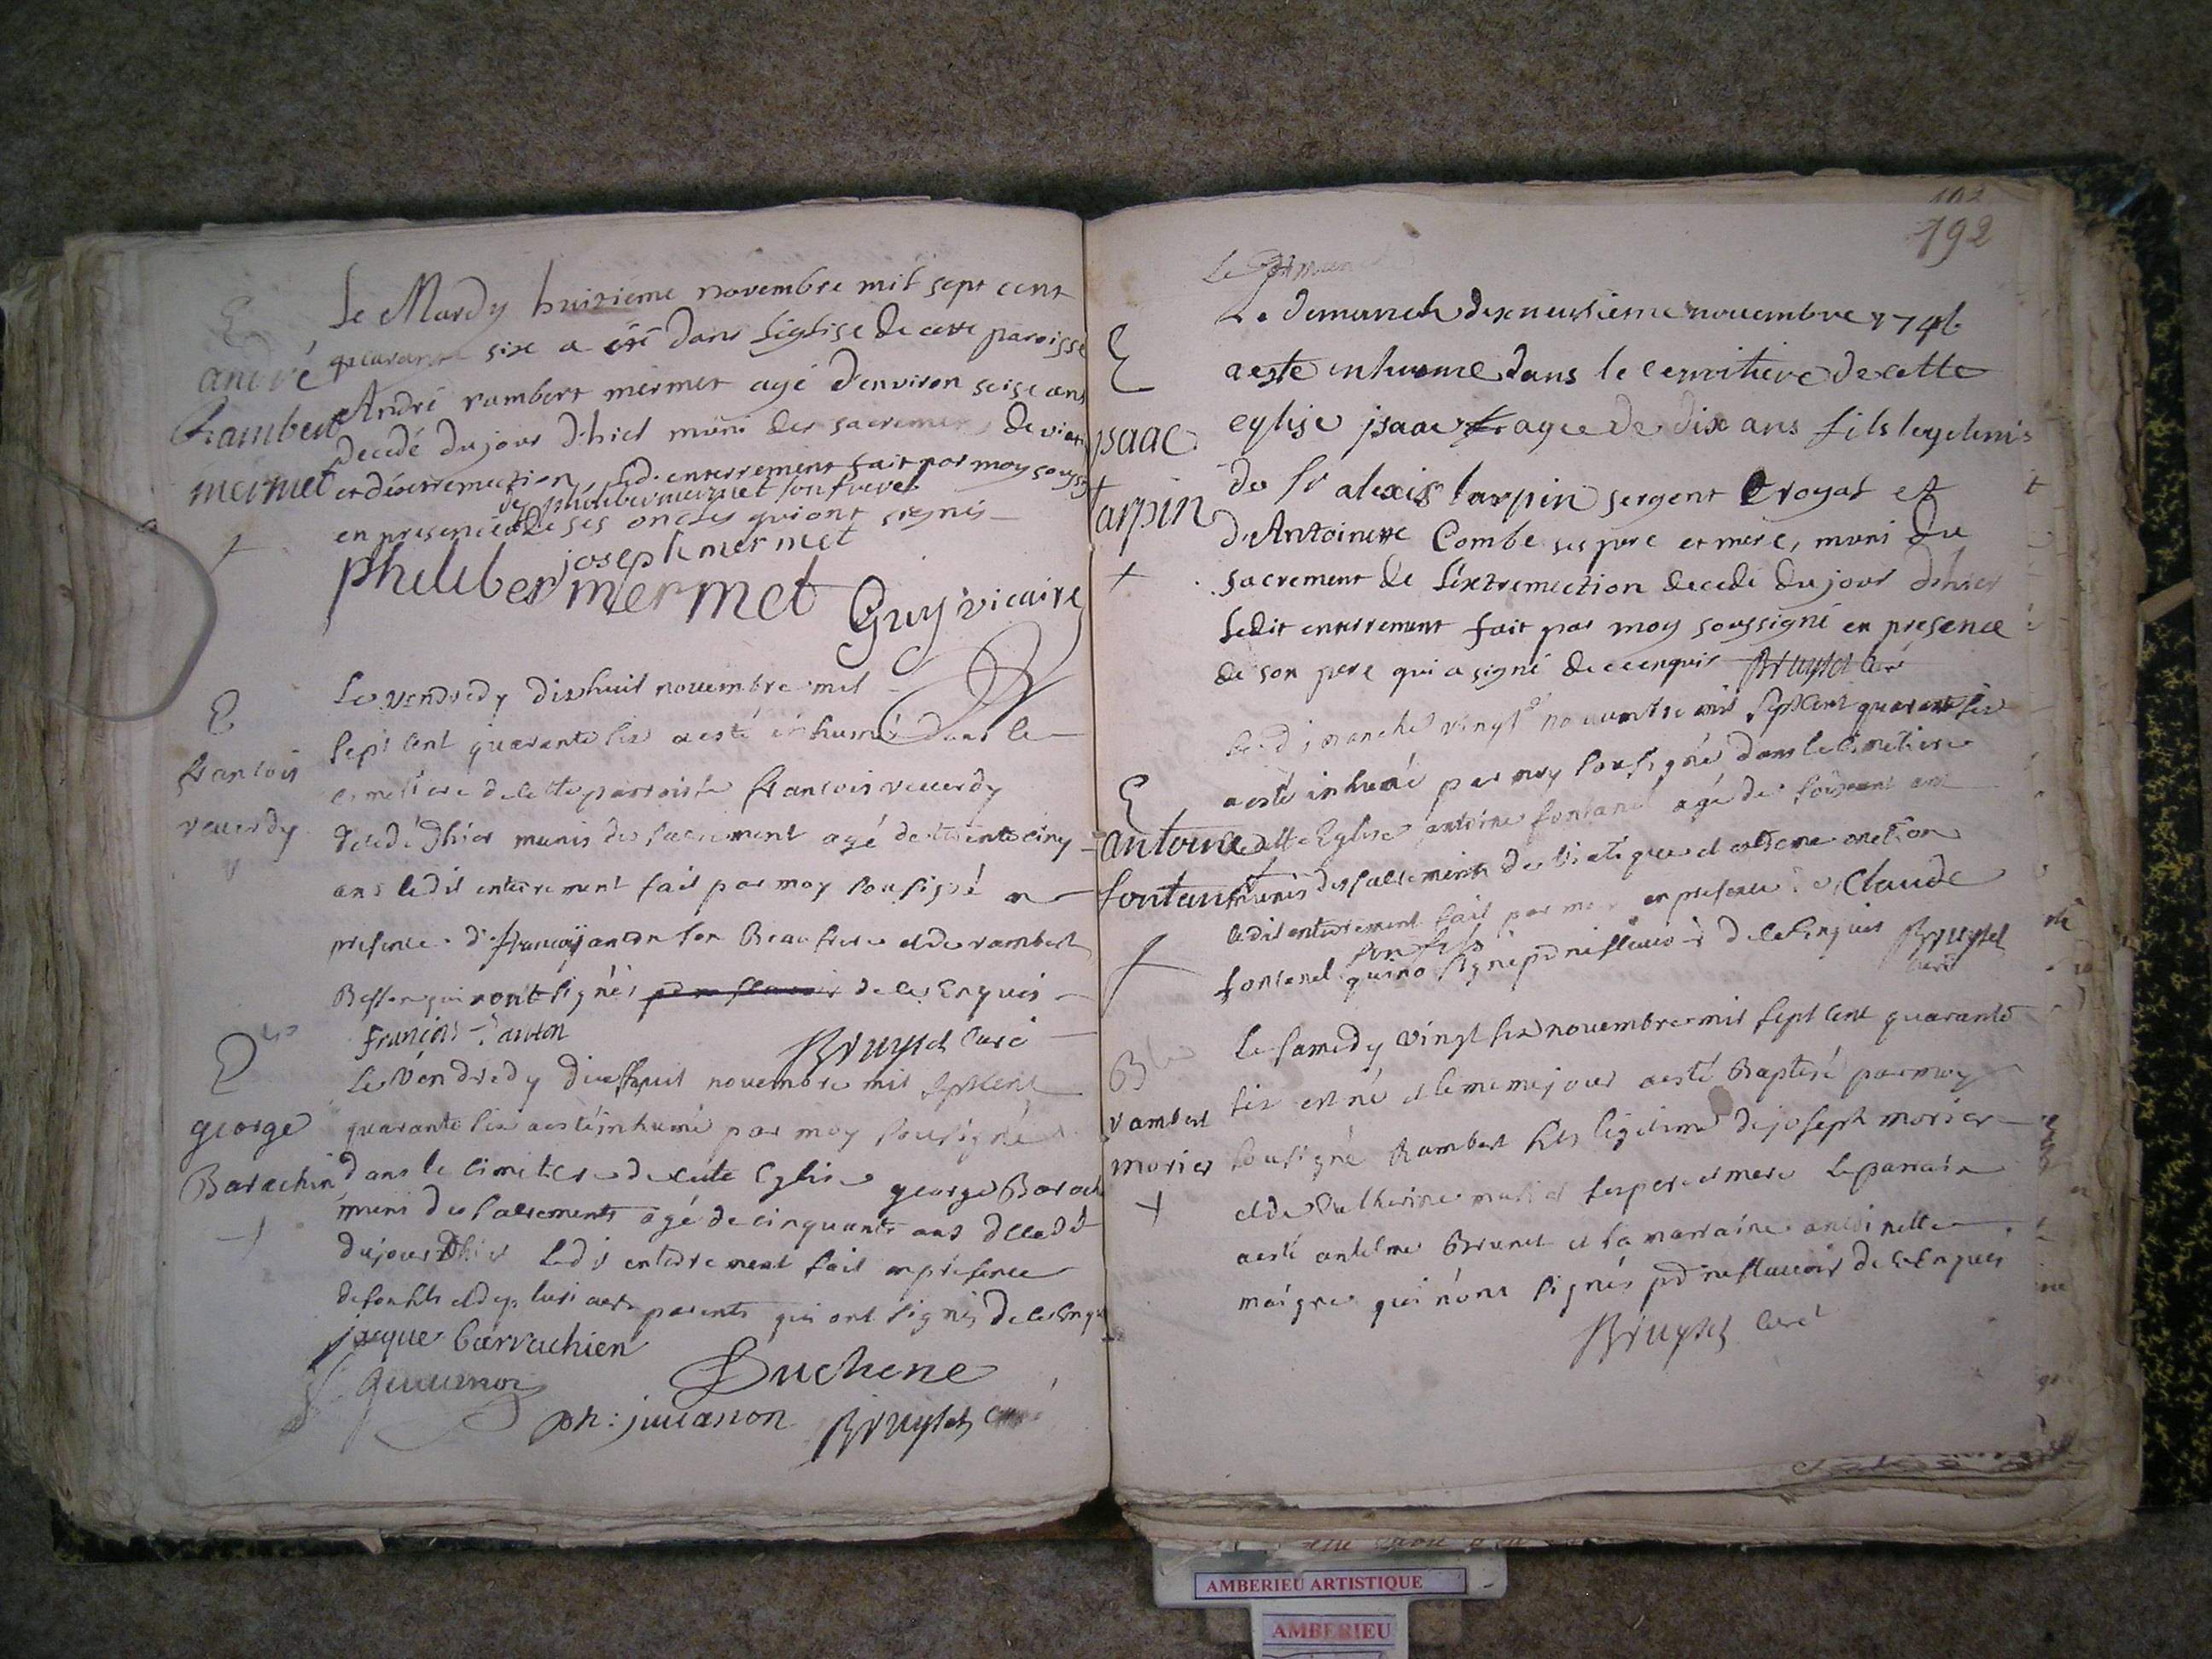 E
andré
Rambert
mermet
Le Mardy huitieme novembre mil sept cent
quarante six a été dans l'église de cette paroisse
André rambert mermet agé d'environ seise ans
decedé du jour d'hiel muni des sacremens de viati
et d'éxtremection, led. enterrement fait par moy soussi
de philiber mermet son frere
en presence de ses oncles qui ont signés
joseph mermet
philiber mermet Guy vicaire
E
francois
reuerdy
Le vendredy dix huit nouembre mil
sept cent quarante six a esté inhumé dans le
cimettiere de cette parroisse francois reuerdy
decedé d'hier munis des sacrement agé de trente cinq
ans ledit enterrement fait par moy sousigné en
presence de françois anton son Beau frere et de rambert
Besson qui n'ont signés de ce Enquis
françois anton Bruyset curé
E
george
Barachin
Le Vendredy dix huit nouembre mil sept cent
quarante six a esté inhumé par moy sousigné
dans le cimetiere de cette Eglise george Barach
muni des sacrements agé de cinquante ans decedé
du jour d'hier ledit enterrement fait en présence
de son fils et de plusieurs parents qui ont signés de ce enqu
jacque barrachien
Duchene
ph: juuanon Bruyset curé
192
192
Le
E
jsaac
tarpin
Le Demanche dixneufieme nouembre 1746
a esté inhumé dans le cemitiere de cette
eglise jsaac agée de dix ans fils legitimis
de sr alexis tarpin sergent royal et
d'Antoinette Combe ses pere et mere, muni du
sacrement de l'éxtremection decedé du jour d'hier
ledit enterrement fait par moy soussigné en presence
de son pere qui a signé de ce enquis Bruyset curé
E
antoine
fontanel
Le dimanche vingt nouembre mil sept cent quarante six
a esté inhumé par moy sousigné dans le cimetiere
de cette Eglise antoine fontanel agé de soixant ans
munis des sacrements de viatique et extreme onction
ledit enterrement fait par moy en presence de Claude
son fils
fontanel qui n'a signé pr ne scauoir de ce Enquis Bruyset
curé
B
rambert
morier
Le samedy vingt six nouembre mil sept cent quarante
six est né et le meme jour a esté Baptisé par moy
sousigné Rambert fils légitime de joseph morier
et de Catherine ses pere et mere le parrain
a esté antelme Brunet et sa marraine antoinette
maigre qui n'ont signés pr ne scauoir de ce Enquis
Bruyset curé
AMBERIEU ARTISTIQUE
AMBERIEU